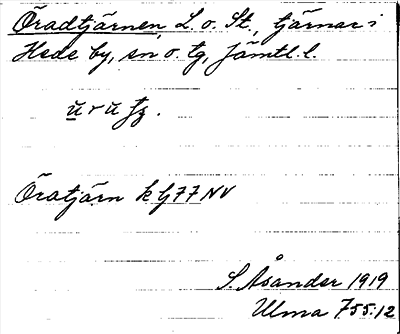 Öradtjärnen, L. o. St., tjärnar i
Hede by, sn o. tg, Jämtl. l.
Öratjärn k bj 77 NV
S. Åsander 1919
Ulma 755:12